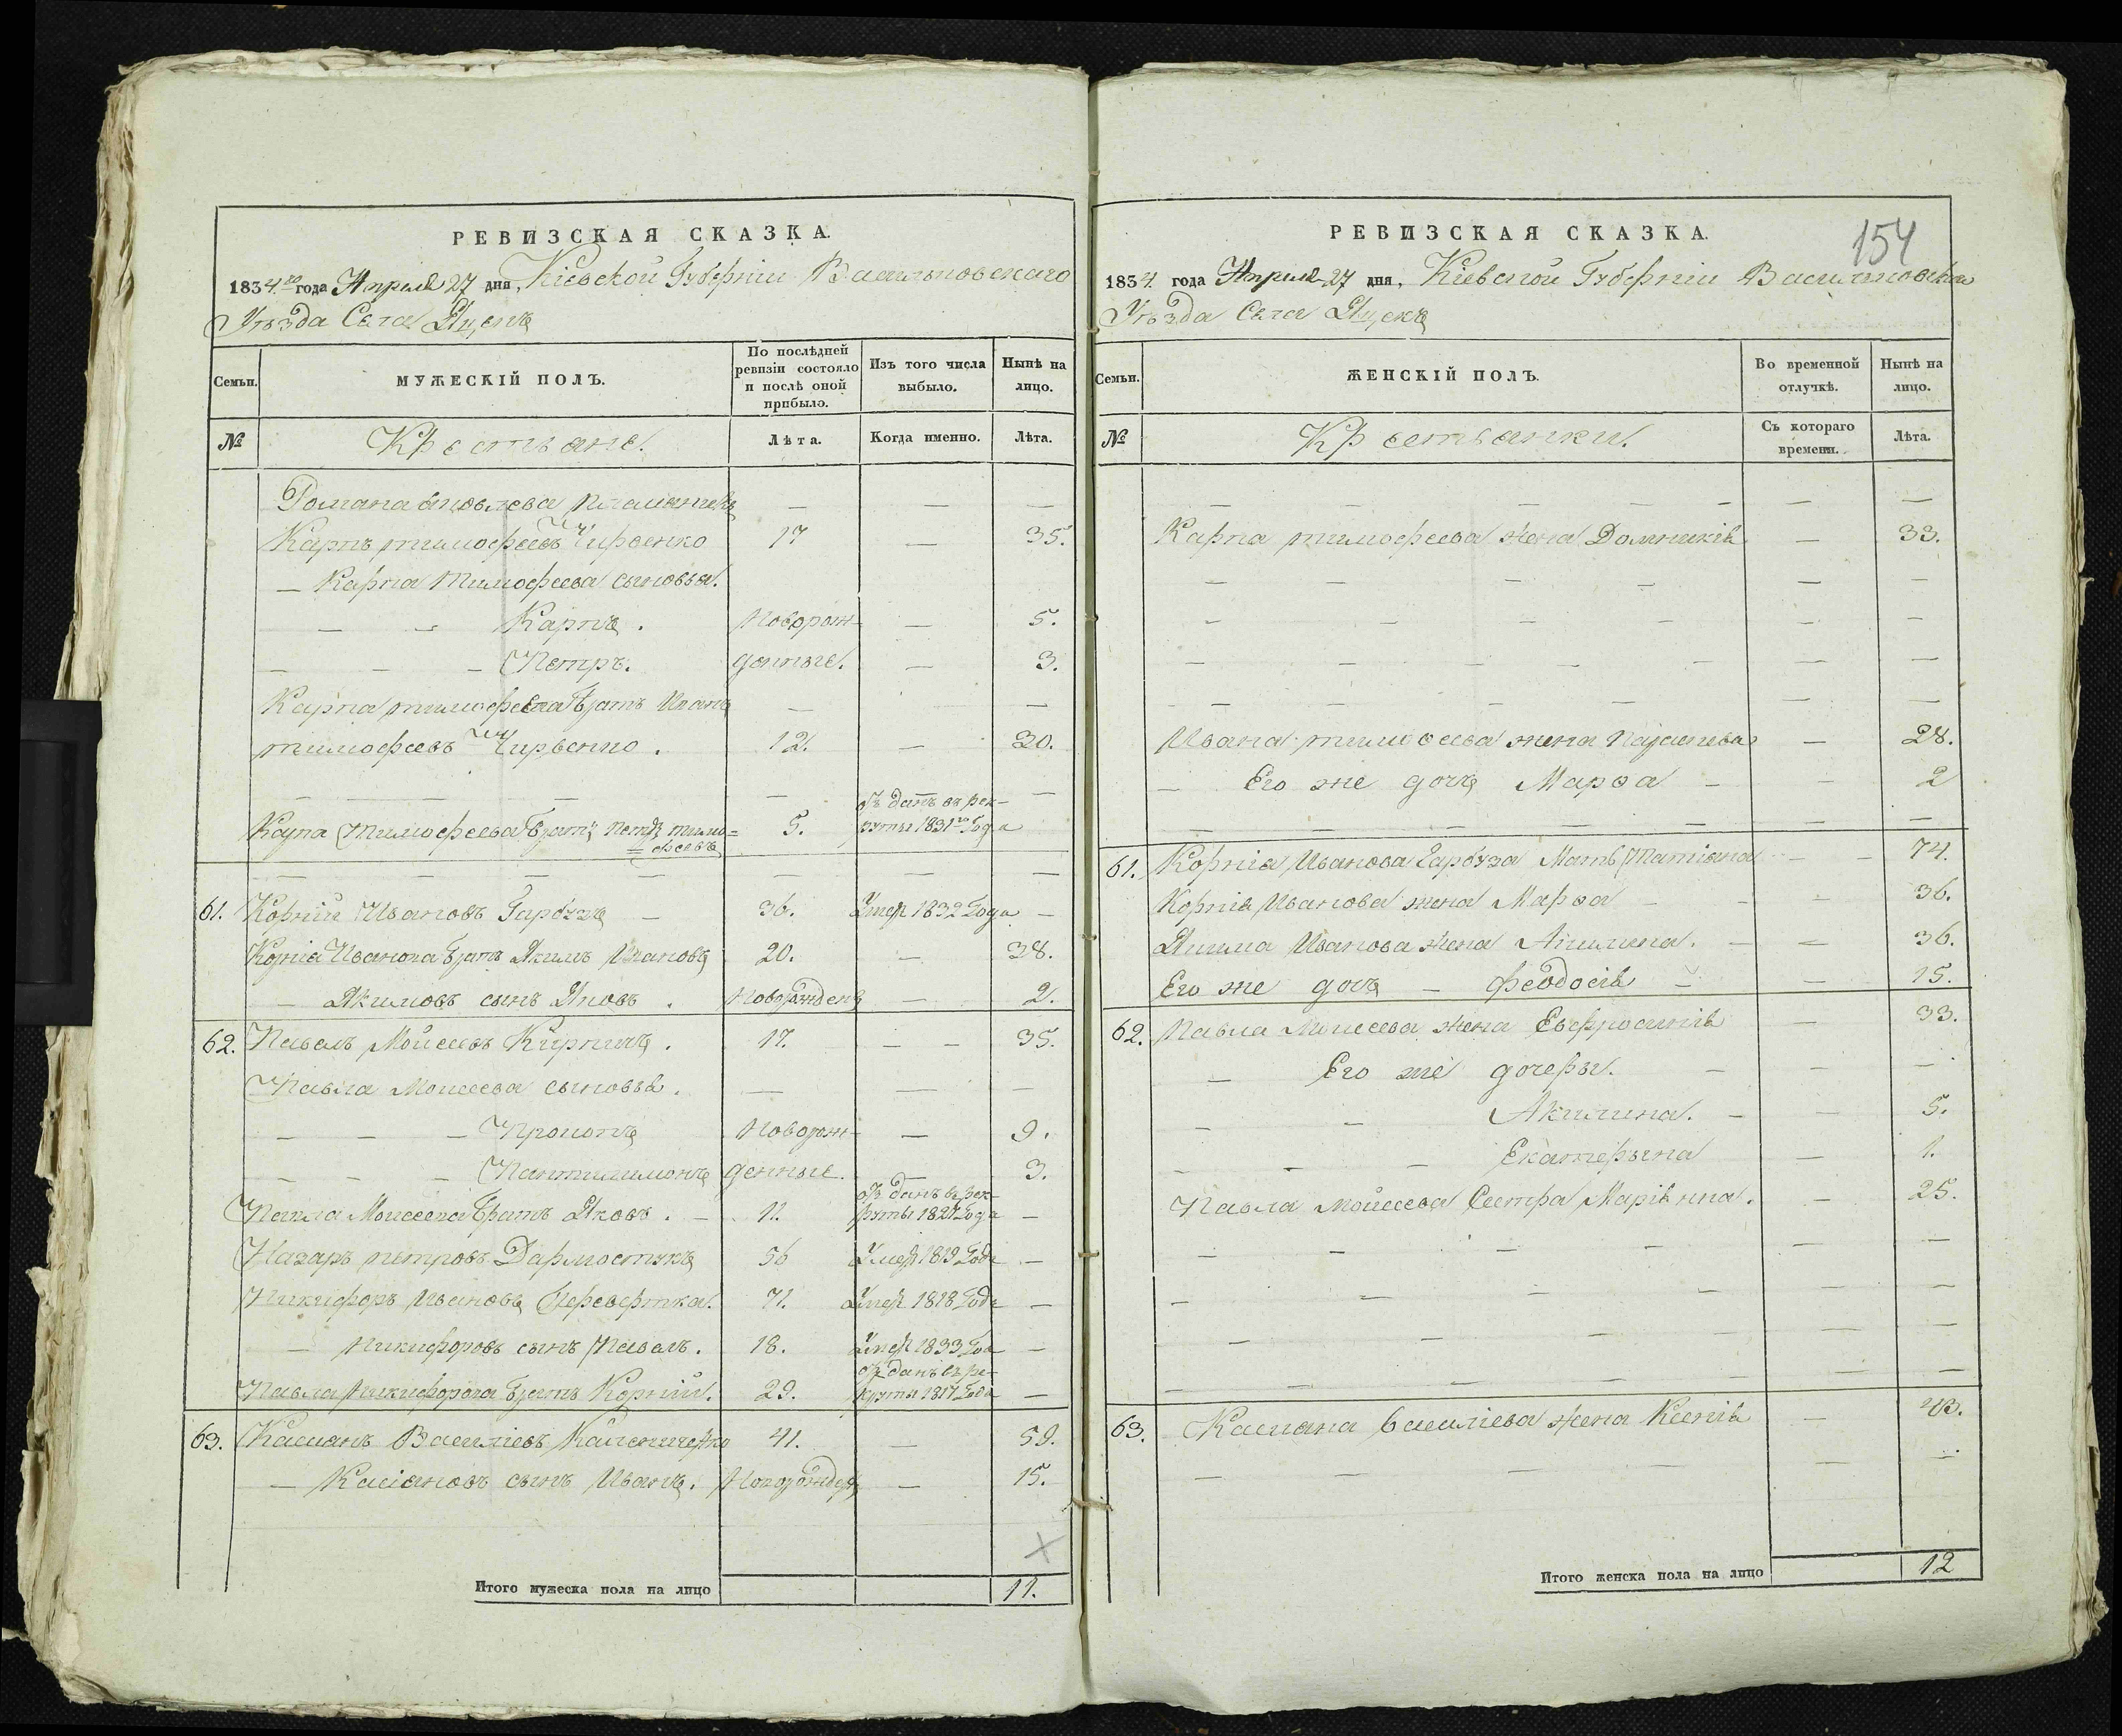 РЕВИЗСКАЯ СКАЗКА.
1834го года Апреля 27 дня, Кіевской Губерніи Васильковскаго
Уѣзда Села
Семьи.
МУЖЕСКІЙ ПОЛЪ.
По послѣдней ревизіи состояло и послѣ оной прибыло.
Изъ того числа выбыло.
Нынѣ на лицо.
№
Крестьяне.
Лѣта.
Когда именно.
Лѣта.
Романа Яковлева племянникъ — — —
Карпъ тимофеевъ Чирвенко 17 — 35.
— Карпа Тимофеева сыновья.
— — Карпъ. Новорож- — 5.
— — — Петръ. денные. — 3.
Карпа тимофеева Братъ Иванъ — —
тимофеевъ Чирвенко. 12. — 30.
— — — — — —
Карпа Тимофеева Братъ Петръ тимо= 5. отъ данъ въ рек-
руты 1831го Года
= феевъ
— — — — — — — —
61. Корній Ивановъ Гарбузъ — 36. Умер 1832 Года —
Корнія Иванова Братъ Якимъ Ивановъ 20. — 38.
— Якимовъ сынъ Яковъ. Новорожденъ — 2.
62. Павелъ Мойсеевъ Кирпичъ. 17. — — 35.
Павла Моисеева сыновья. — — —
— — — Прокопъ Новорож- — 9.
— — — Пантилимонъ денные. — 3.
Павла Моисеева Братъ Яковъ. — 11. отъ данъ в рек-
руты 1827 Года —
Назаръ петровъ Дармостукъ 56 Умер 1819 Года —
Никифоръ Ивановъ Перевертка. 71. Умер 1818 Года —
— Никифоровъ сынъ Павелъ. 18. Умер 1833 Год —
Павла Никифорова Братъ Корній. 29. отъ данъ въ ре-
круты 1817 Года —
63. Касианъ Василіевъ 41. — 59.
— Касіановъ сынъ Иванъ. Новорожденъ — 15.
Итого мужеска пола на лицо 11.
РЕВИЗСКАЯ СКАЗКА.
154
1834 года Апреля 27 дня, Кіевской Губерніи Васильковскаго
Уѣзда Села
Семьи.
ЖЕНСКІЙ ПОЛЪ.
Во временной отлучкѣ.
Нынѣ на лицо.
№
Крестьянки.
Съ котораго времени.
Лѣта.
— — — — — —
Карпа тимофеева жена Домникія — 33.
— — — — — —
— — — — — —
— — — — — — —
— — — — — —
Ивана тимофеева жена — 28.
— Его же дочь Марѳа — — 2
— — — — — — — —
61. Корнія Иванова Гарбуза Мать Татіана — — 74.
Корнія Иванова жена Марѳа — — 36.
Якима Иванова жена Акилина. — — 36.
Его же дочь — Феодосія — — 15.
62. Павла Моисеева жена Евфросинія — 33.
— Его же дочеры. — — —
— — Акилина. — — 5.
— — — Екатерына — 1.
Павла Мойсеева Сестра Маріянна. — 25.
— — — — — —
— — — — — —
— — — — — —
— — — — — — —
63. Касиана Василіева жена Ксенія — 43.
— — — — — —
Итого женска пола на лицо 12